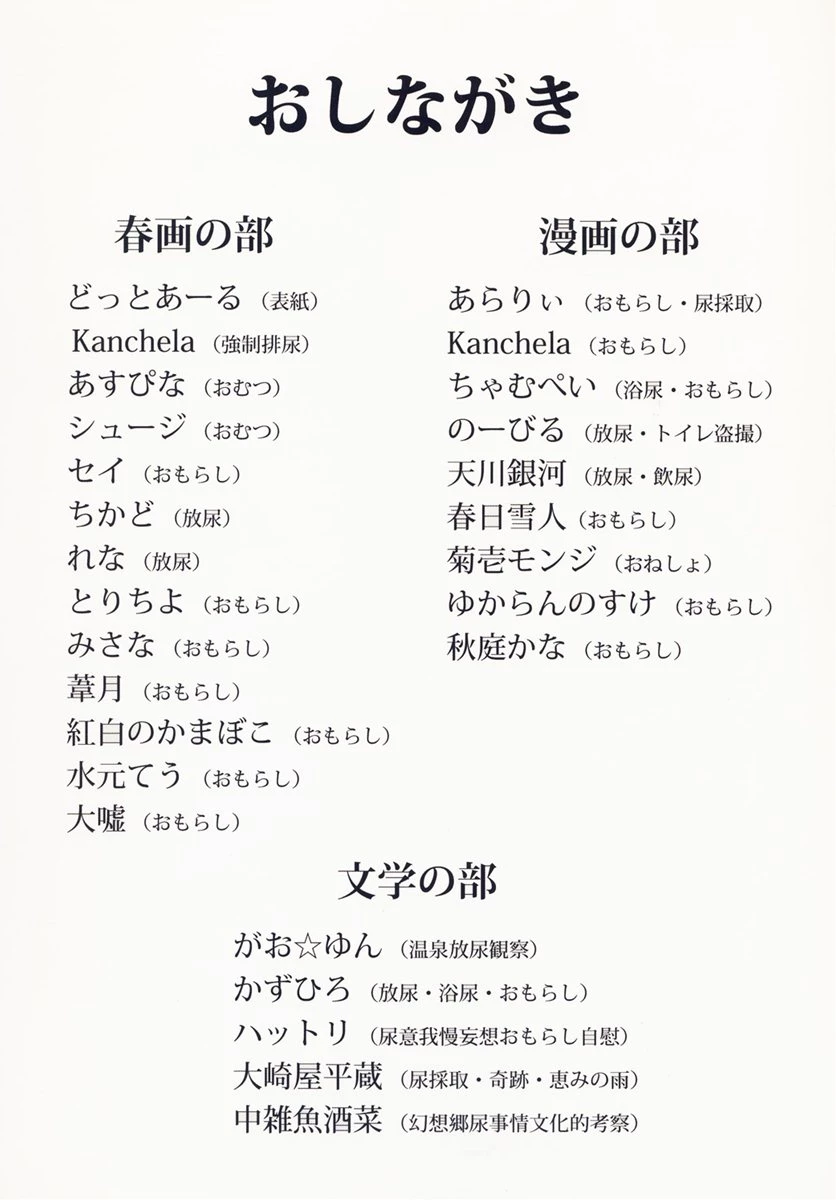 おしながき
春画の部
どっとあーる（表紙）
Kanchela（強制排尿）
あすぴな（おむつ）
シュージ（おむつ）
セイ（おもらし）
ちかど（放尿）
れな（放尿）
とりちよ（おもらし）
みさな（おもらし）
葦月（おもらし）
紅白のかまぼこ（おもらし）
水元てう（おもらし）
大嘘（おもらし）
漫画の部
あらりぃ（おもらし・尿採取）
Kanchela（おもらし）
ちゃむぺい（浴尿・おもらし）
のーびる（放尿・トイレ盗撮）
天川銀河（放尿・飲尿）
春日雪人（おもらし）
菊壱モンジ（おねしょ）
ゆからんのすけ（おもらし）
秋庭かな（おもらし）
文学の部
がお☆ゆん（温泉放尿観察）
かずひろ（放尿・浴尿・おもらし）
ハットリ（尿意我慢妄想おもらし自慰）
大崎屋平蔵（尿採取・奇跡・恵みの雨）
中雑魚酒菜（幻想郷尿事情文化的考察）